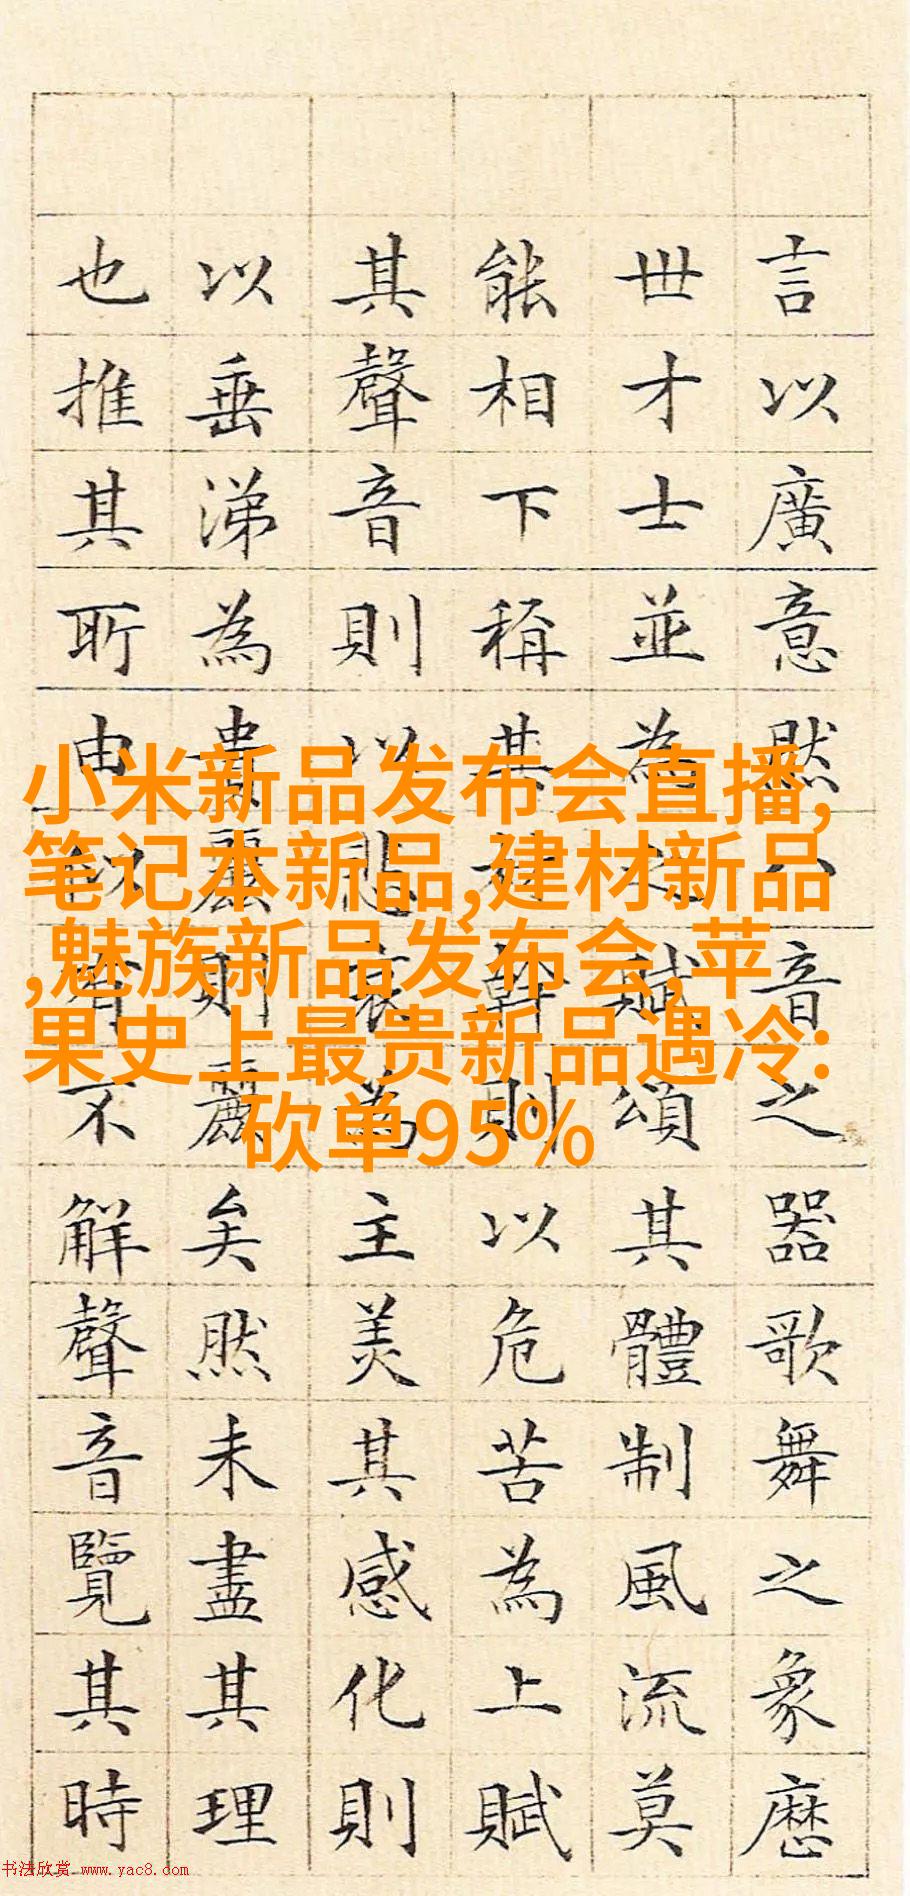 言以廣意然八音之器歌舞之象歷
世才士並為之賦頌其體制風流莫
能相下稱其材幹則以危苦為上賦
其聲音則以悲哀為主美其感化則
以垂涕為貴麗則麗矣然未盡其理
也推其所由似不解聲音覽其時
小米新品发布会直播,
笔记本新品,建材新品
,魅族新品发布会,苹
果史上最贵新品遇冷:
砍单95%
书法欣赏 www.yac8.com